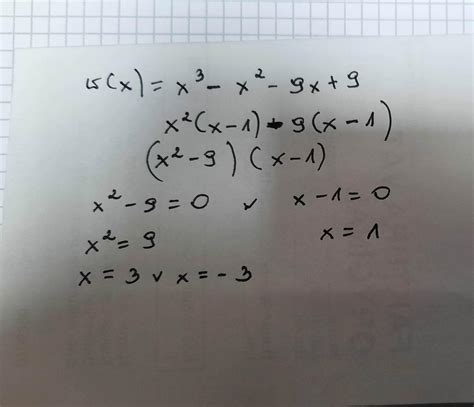 w(x) = x³ - x² - 9x + 9
x²(x-1) - 9(x-1)
(x²-9) (x-1)
x² - 9 = 0 ∨ x - 1 = 0
x² = 9 x = 1
x = 3 ∨ x = -3